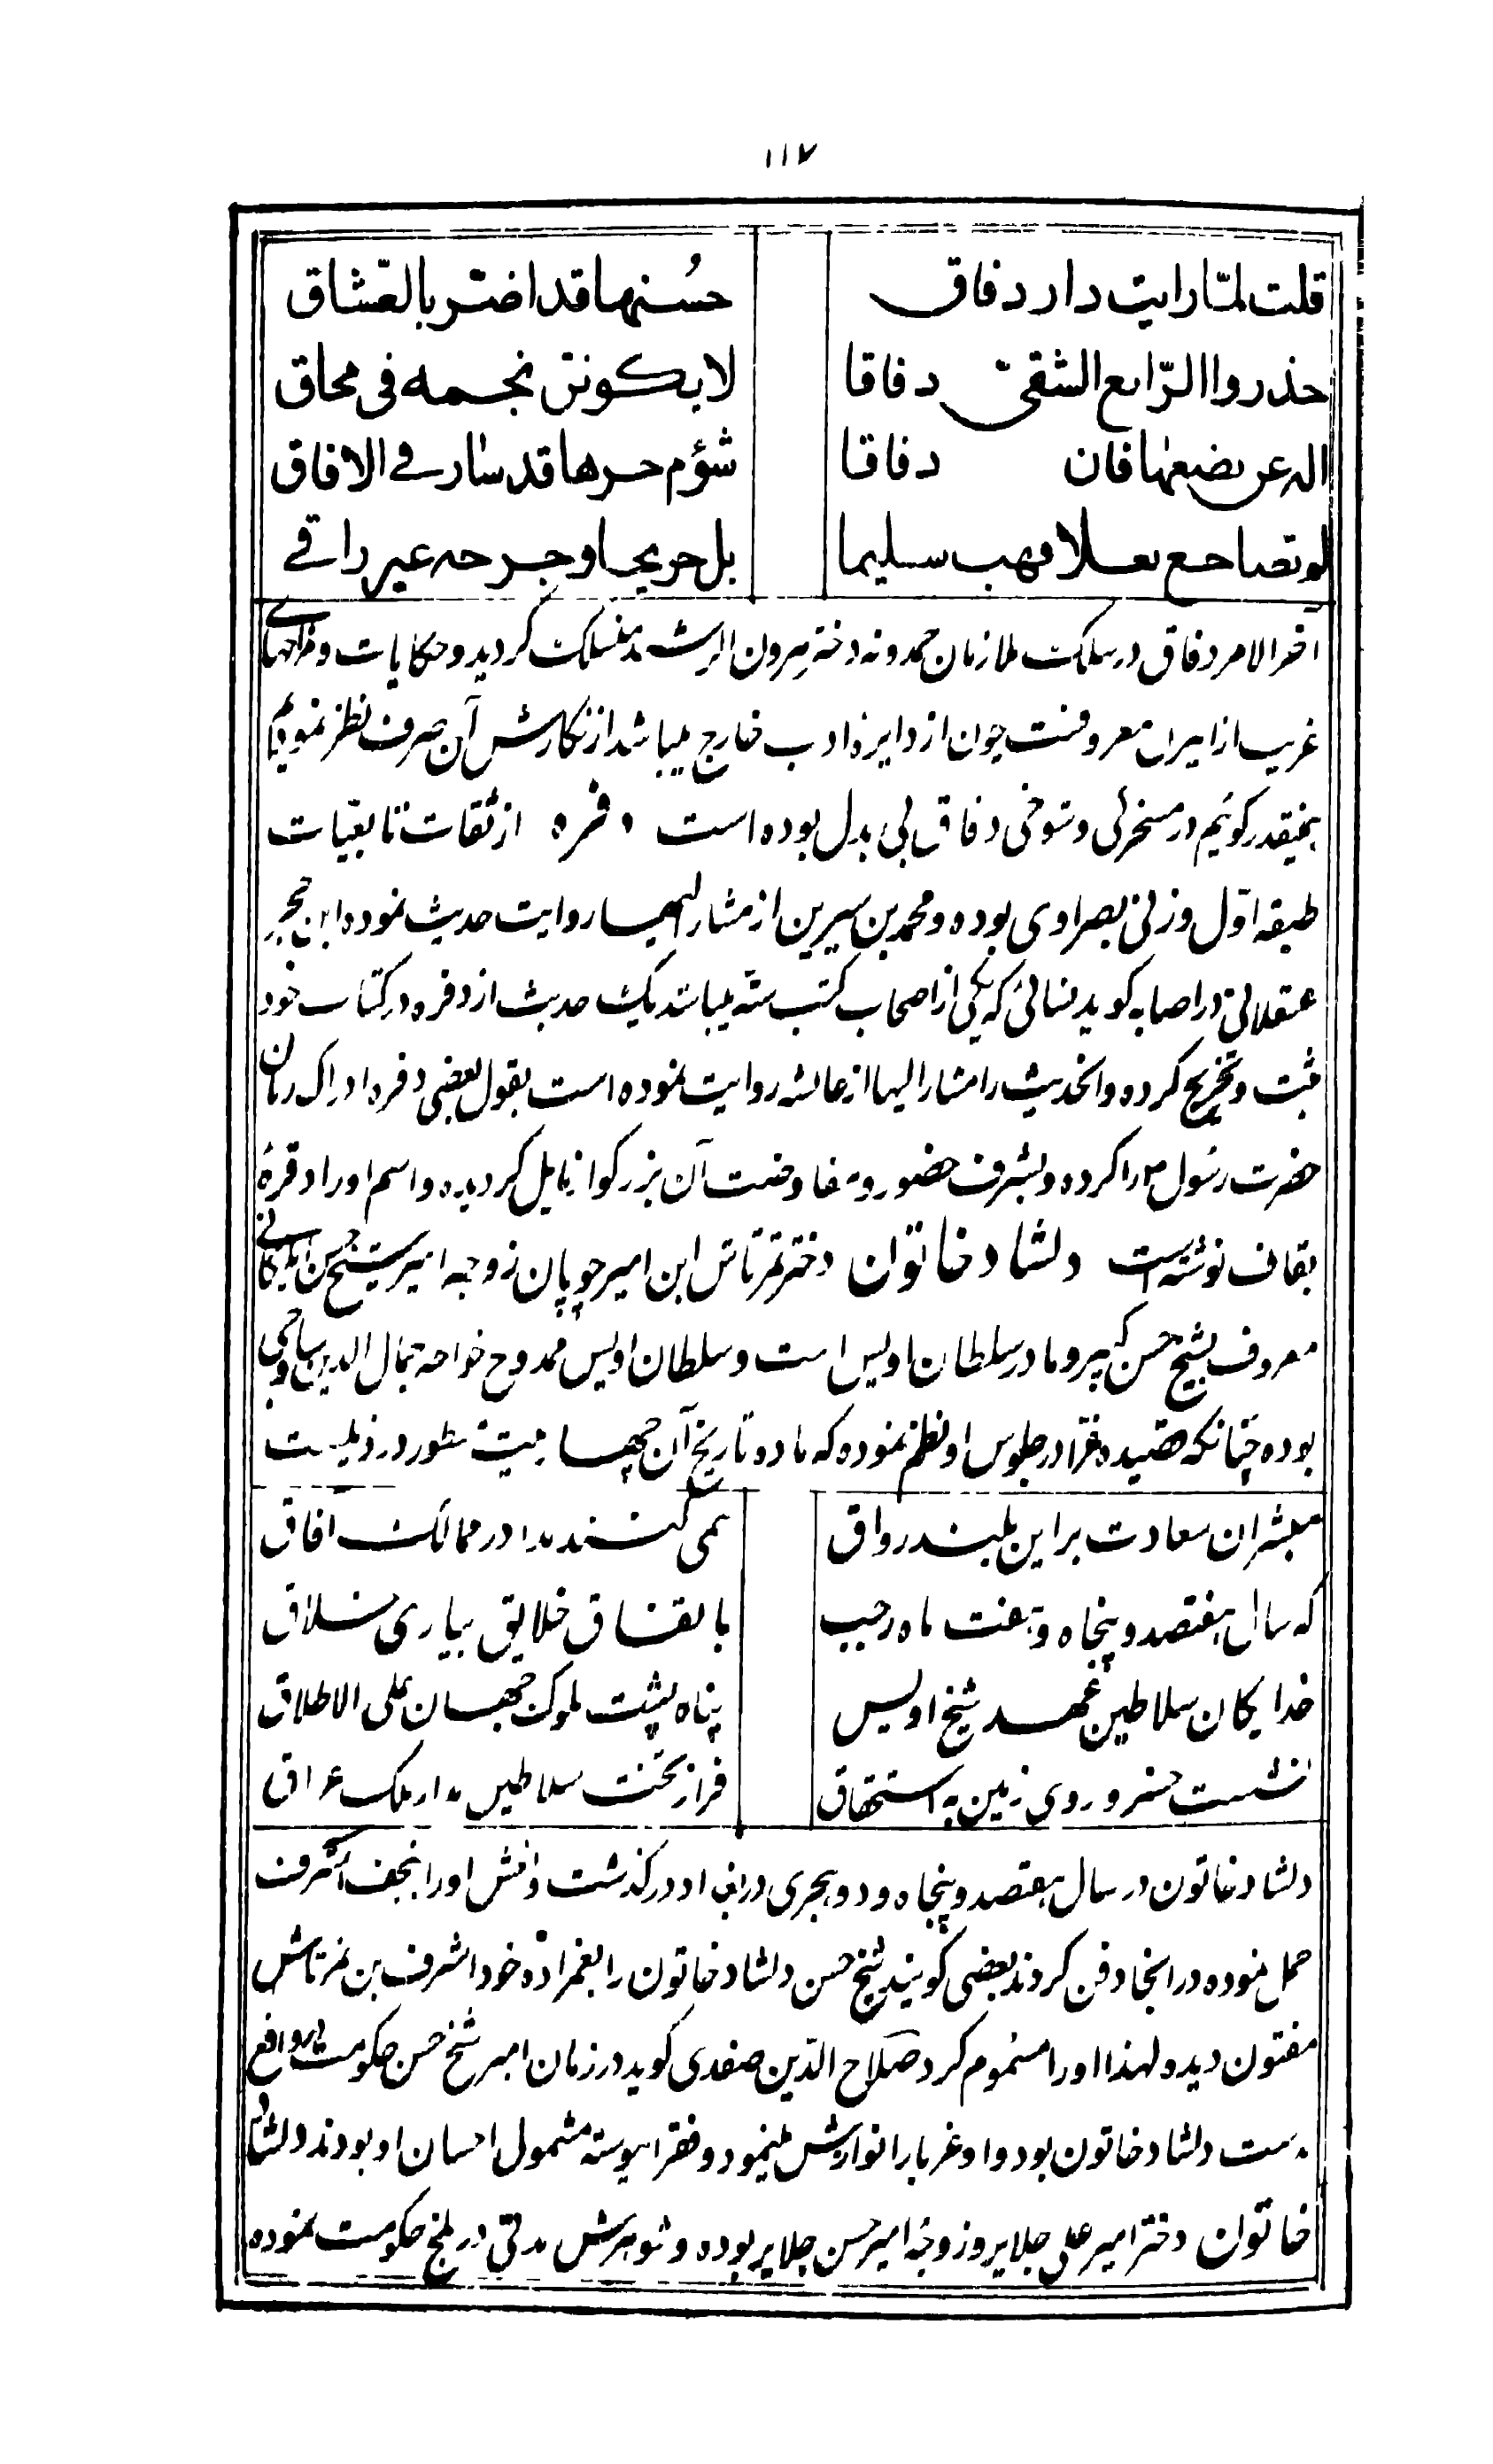 ۱۱۷
قلت لمّا رایت دار دفاق حُسنها قد اضتر بالعّشاق
حذروا الرّابع الشقیّ دفاقا لایکونن نجمه فی محاق
اله عن بضعها فان دفاقا شؤم حرها قد سار فی الافاق
لم تضاجع بعلا فهب سلیما بل جریحا و جرحه غیر راقی
آخر الامر دفاق در سلک ملازمان حمدونه دختر هرون الرشید منسلک گردید و حکایات و مزاحهای
غریب از ایران معروفست چون از دایره ادب خارج میباشد از نگارش آن صرف نظر نمودیم
بهمینقدر گوئیم در مسخرگی و شوخی دفاق بی بدل بوده است دفره از ثقات تابعیات
طبقه اوّل و زنی بصراوی بوده و محمد بن سیرین از مشار الیها روایت حدیث نموده ابن حجر
عسقلانی در اصابه گوید نسائی که یکی از اصحاب کتب ستّه میباشد یک حدیث از دفره در کتاب خود
ثبت و تخریج کرده و آنحدیث را مشار الیها از عایشه روایت نموده است بقول بعضی دفره ادراک زمان
حضرت رسول ص را کرده و بشرف حضور و مفاوضت آن بزرگوار نایل گردیده و اسم او را دقره
بقاف نوشته است دلشاد خاتوان دختر تمرتاش ابن امیر چوپان زوجه امیر شیخ حسن ایلکانی
معروف بشیخ حسن کبیر و مادر سلطان اویس است و سلطان اویس ممدوح خواجه جمال الدین ساوجی
بوده چنانکه قصیده غرّا در جلوس او نظم نموده که ماده تاریخ آن چهار بیت مسطور در ذیلست
مبشران سعادت بر این بلند رواق همی کنند ندا در ممالک آفاق
که سال هفتصد و پنجاه و هفت ماه رجب باتفاق خلایق بیاری خلاق
خدایگان سلاطین عهد شیخ اویس پناه پشت ملوک جهان علی الاطلاق
نشست خسرو روی زمین به استحقاق فراز تخت سلاطین بدار ملک عراق
دلشاد خاتون در سال هفتصد و پنجاه و دو هجری در بغداد درگذشت و نعش او را بنجف اشرف
حمل نموده در آنجا دفن کردند بعضی گویند شیخ حسن دلشاد خاتون را بعمزاده خود اشرف بن تمرتاش
مفتون دید و لهذا او را مسموم کرد صلاح الدّین صفدی گوید در زمان امیر شیخ حسن حکومت فی الواقع
بدست دلشاد خاتون بود و او غربا را نوازش مینمود و فقرا پیوسته مشمول احسان او بودند دلشاد
خاتوان دختر امیر علی جلایر و زوجه امیر حسن جلایر بوده و شوهرش مدتی در بلخ حکومت نموده